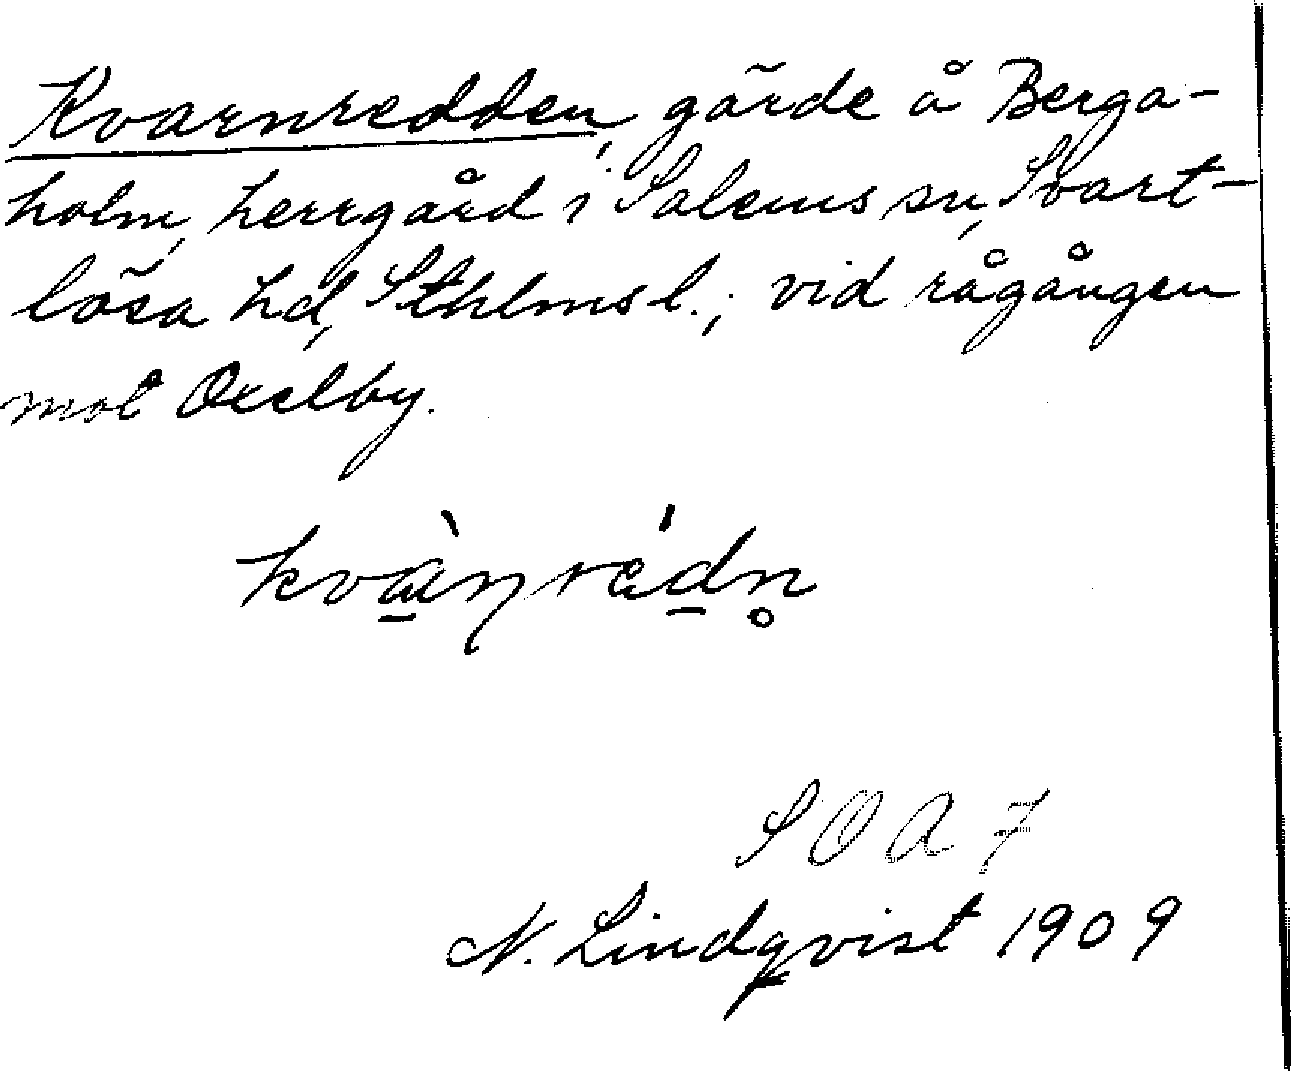 Kvarnredden, gärde å Berga-
holm, herrgård i Salems sn, Svart-
lösa hd, Sthlms l.; vid rågången
mot Oxelby.
kvàṇrédn̥
S O A 7
N. Lindqvist 1909